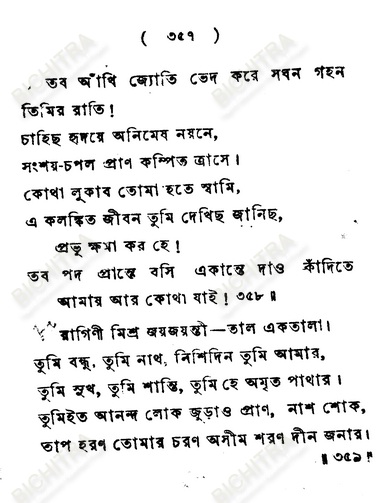 ( ৩৫৭ )
তব আঁখি জ্যোতি ভেদ করে সঘন গহন
তিমির রাতি !
চাহিছ হৃদয়ে অনিমেষ নয়নে,
সংশয়-চপল প্রাণ কম্পিত ত্রাসে।
কোথা লুকাব তোমা হতে স্বামি,
এ কলঙ্কিত জীবন তুমি দেখিছ জানিছ,
প্রভু ক্ষমা কর হে !
তব পদ প্রান্তে বসি একান্তে দাও কাঁদিতে
আমায় আর কোথা যাই ! ৩৫৮ ॥
রাগিণী মিশ্র জয়জয়ন্তী—তাল একতালা।
তুমি বন্ধু, তুমি নাথ, নিশিদিন তুমি আমার,
তুমি সুখ, তুমি শান্তি, তুমি হে অমৃত পাথার।
তুমিইত আনন্দ লোক জুড়াও প্রাণ, নাশ শোক,
তাপ হরণ তোমার চরণ অসীম শরণ দীন জনার।
॥ ৩৫৯ ॥
BICHITRA